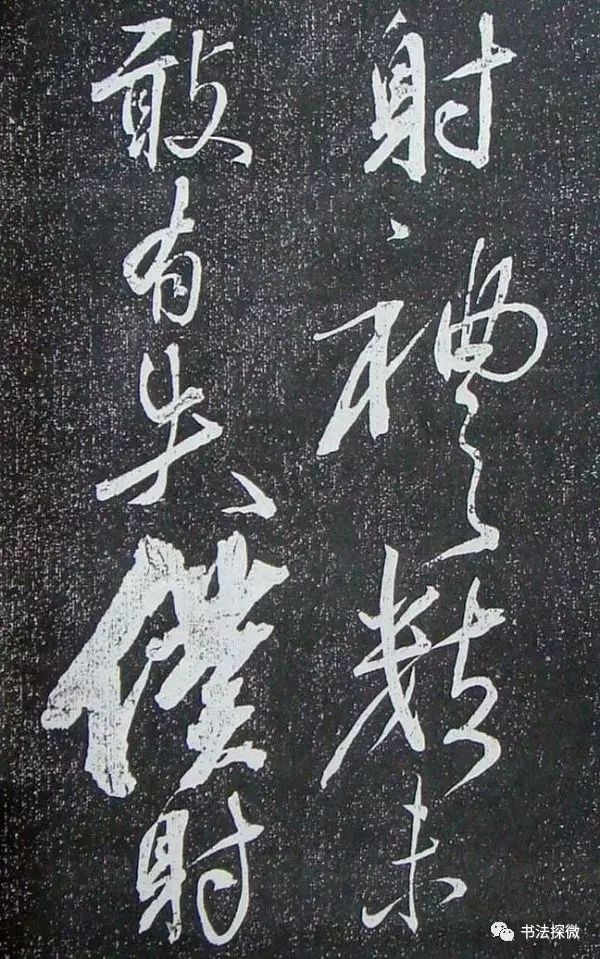 射禮數未
敢有失僕射
书法探微